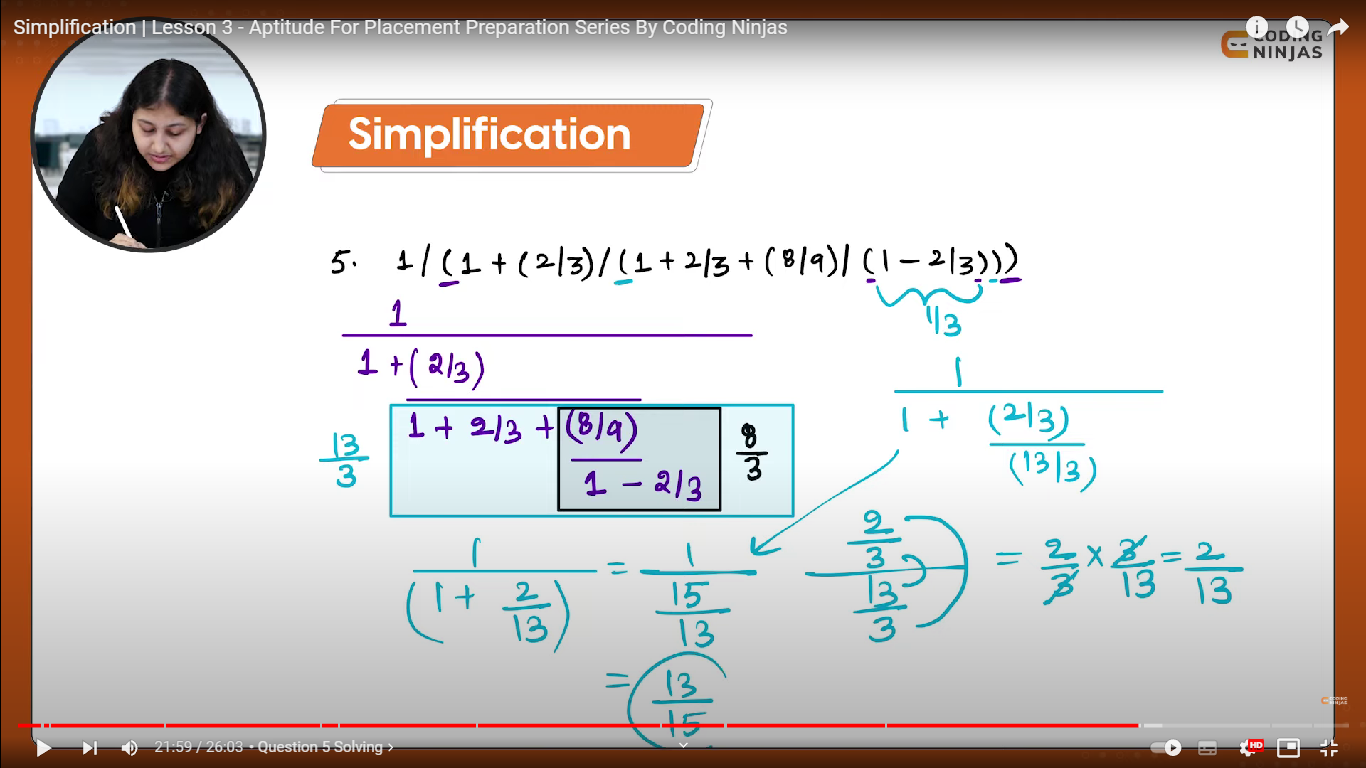 Simplification | Lesson 3 - Aptitude For Placement Preparation Series By Coding Ninjas
CODING
NINJAS
Simplification
5. 1/(1 + (2/3)/(1 + 2/3 + (8/9)/(1 - 2/3)))
1/3
1
1 + (2/3)
1 + 2/3 + (8/9)
1 - 2/3
8
3
13
3
1
1 + (2/3)
(13/3)
1
(1 + 2/13)
= 1
15
13
= 13
15
2
3
13
3
= 2/3 × 3/13 = 2/13
CODING
NINJAS
21:59 / 26:03 • Question 5 Solving >
HD